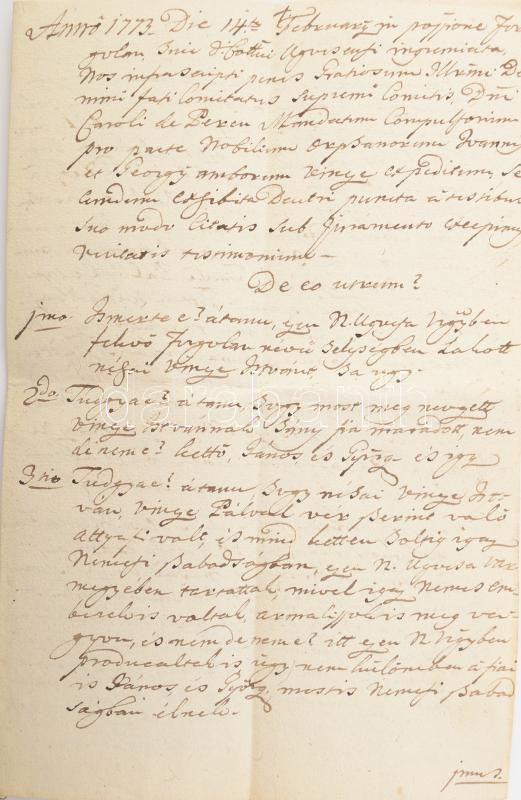 Anno 1773. Die 14ta Februarÿ in possione Fur-
golan, Sui Cottui Ugocsensi ingremiata,
Nos infrascripti penes Gratiosum Illrmi Do-
mini fati Comitatus Supremi Comitis, Dni
Caroli de Peren Mandatum Compulsorium
pro parte Nobilium Orphanorum Joannis
et Georgÿ amborum Vinçe expeditum, Se-
cundum exhibita Deutri puncta a testibus
suo modo citatis sub Juramento excepimus
veritatis testimonium –
De eo utrum?
1mo. Ismerte e? á tanu, ezen N. Ugocsa Vgÿben
fekvő Furgolan nevű helységben Lakott
néhai Vincze Istvánt? Sa ugy.
2do. Tudgyae? á tanu, hogy most meg nevezett
Vincze Istvánnak hány fia maradott, nem
de neme? kettő, János, és Györg és így
3tio Tudgyae? á tanu, hogy néhai Vincze Ist-
ván, Vincze Pálval vér szerint való
attyafi volt, és mind ketten holtig igaz
Nemesi szabadságban, ezen N. Ugocsa Vár-
megyében tartattak, mivel igaz Nemes em-
berek is voltak, armalissok is meg va-
gyon, és nem de neme? itt ezen N. Vgyben
producaltak is, ugy nem külömben á fiai
is János, és Györg, mostis Nemesi szabad-
ságban élnek.
darabanth